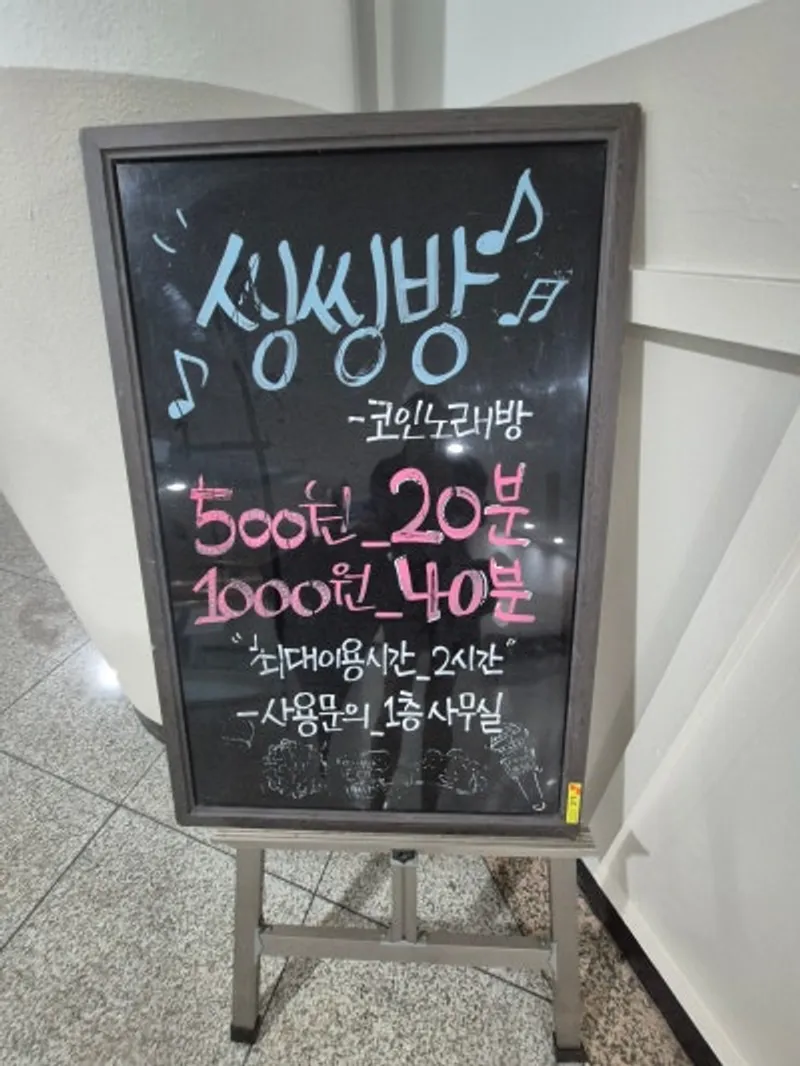 싱씽방
-코인노래방
500원_20분
1000원_40분
"최대이용시간_2시간"
-사용문의_1층 사무실